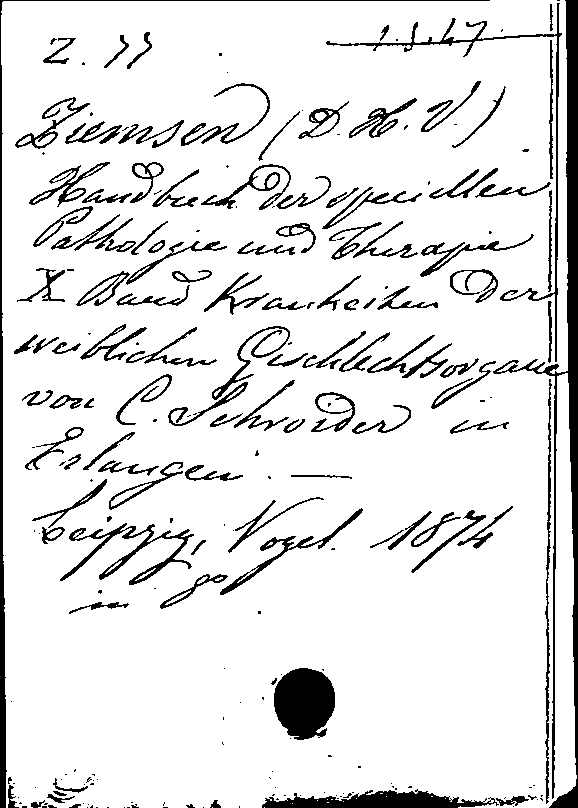 Z. 77 1.5.47
Ziemsen (D. H. V.)
Handbuch der speciellen
Pathologie und Therapie
X Band Krankeiten der
weiblichen Geschlechtsorgane
von C. Schroider in
Erlangen. —
Leipzig, Vogel. 1874
in 8º